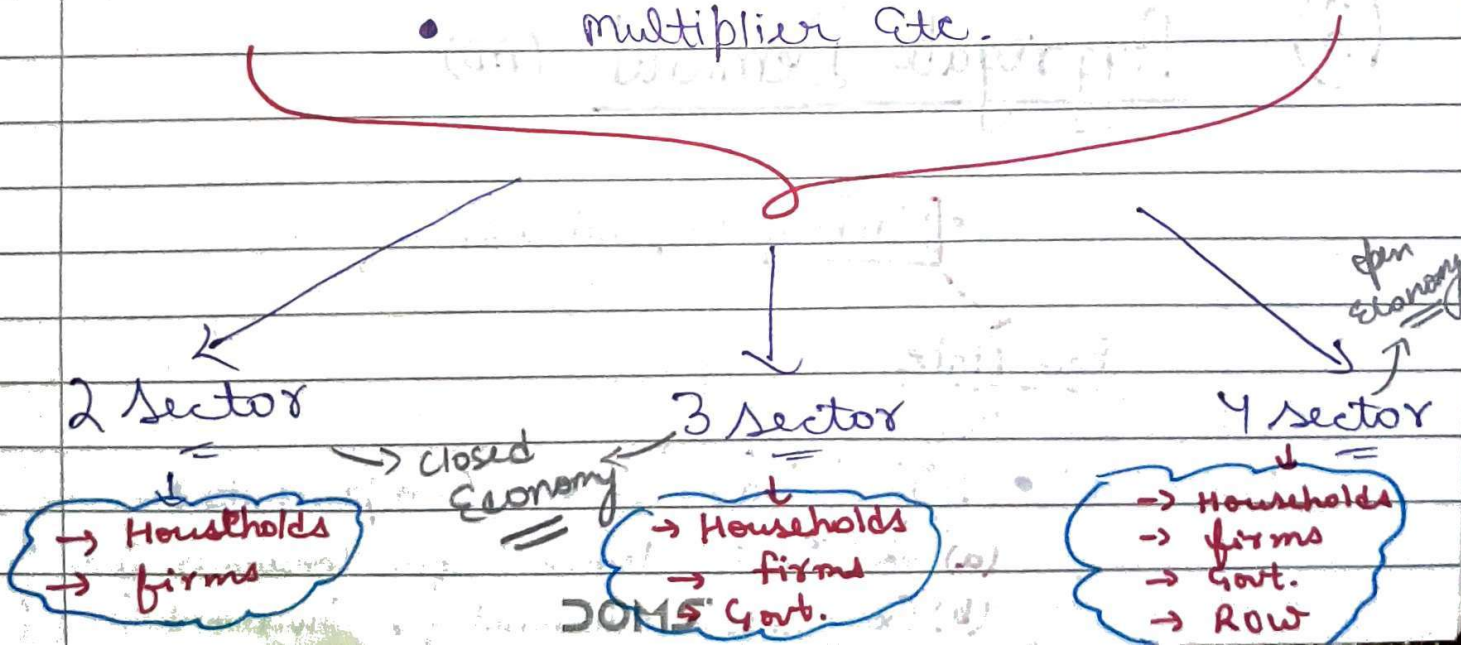 • Multiplier Etc.
open
Economy
2 sector
3 sector
4 sector
→ closed
Economy
→ Households
→ firms
→ Households
→ firms
→ Govt.
→ Households
→ firms
→ Govt.
→ ROW
DOMS